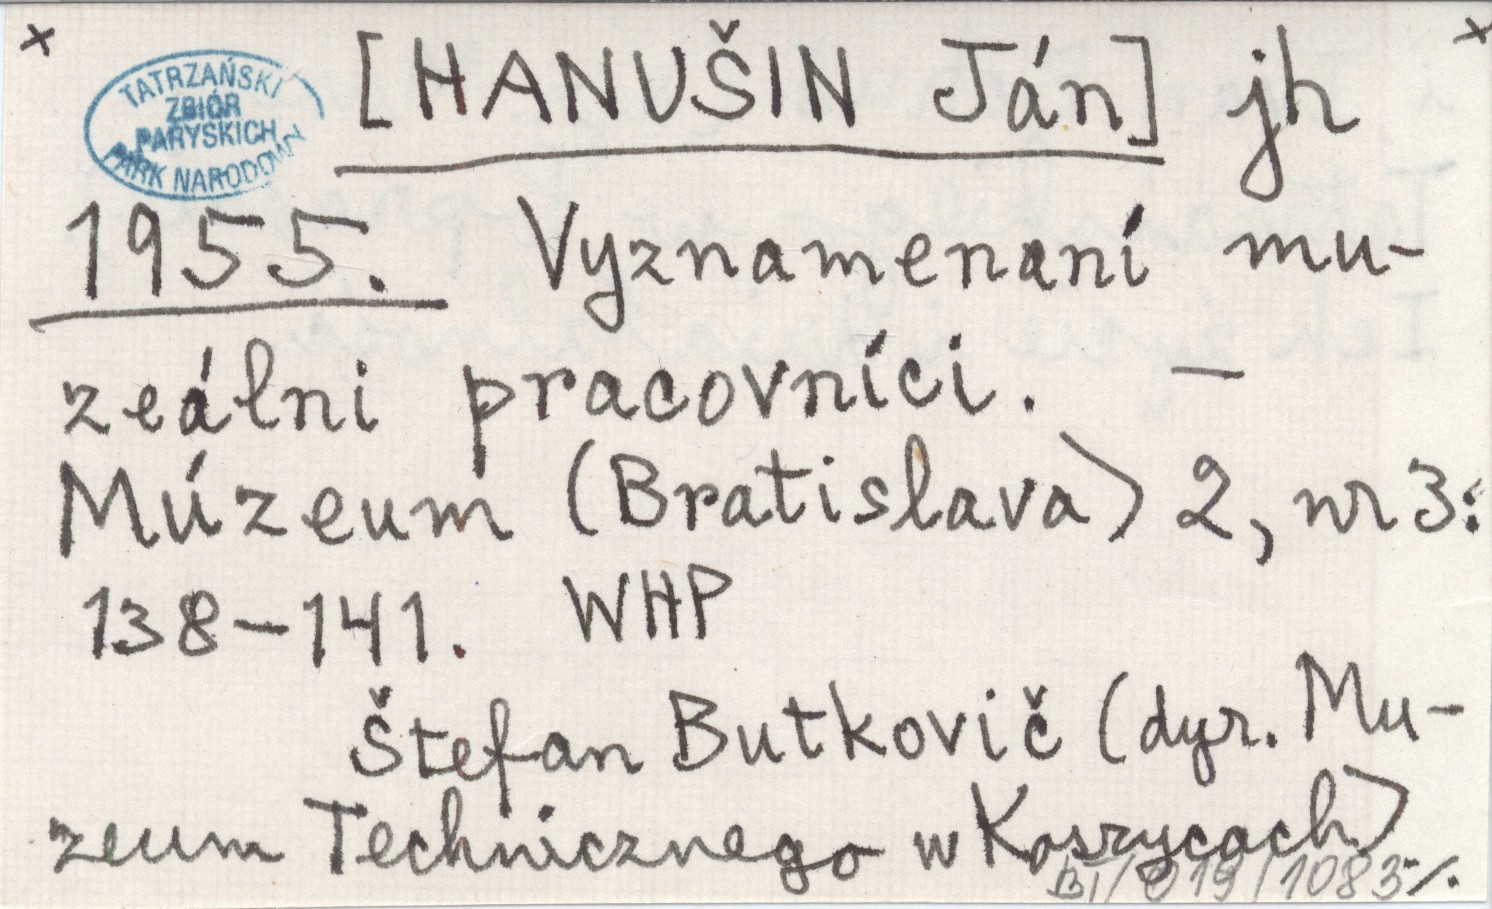 x [HANUŠIN Ján] jh x
TATRZAŃSKI
ZBIÓR
PARYSKICH
PARK NARODOWY
1955. Vyznamenaní mu-
zeálni pracovníci. —
Múzeum (Bratislava) 2, nr 3:
138-141. WHP
Štefan Butkovič (dyr. Mu-
zeum Technicznego w Koszycach)
BI/019/1083-/.